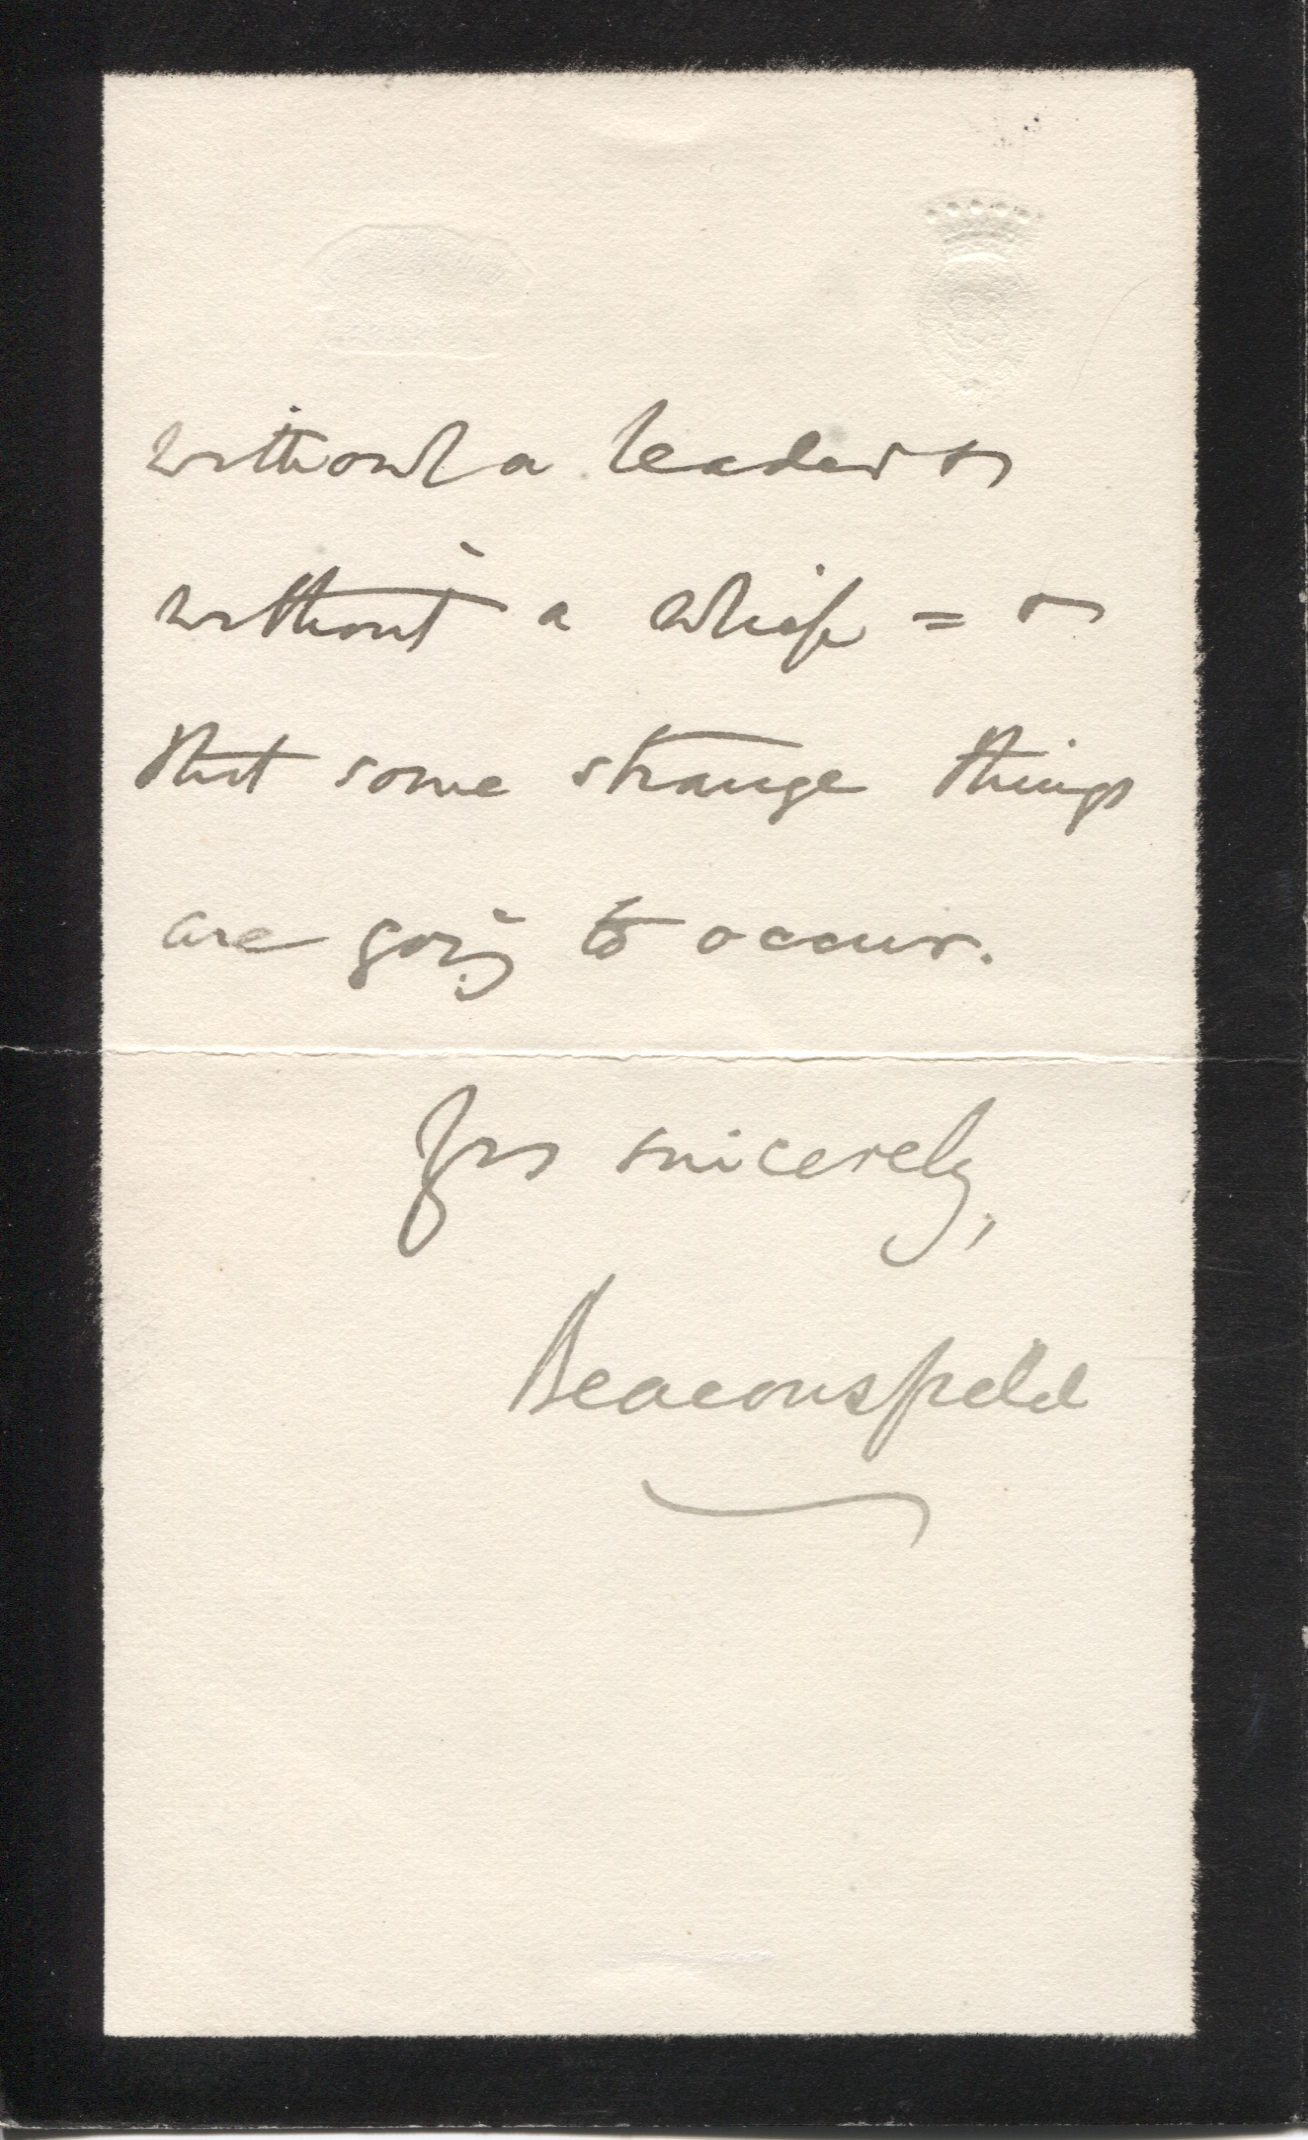 without a leader &
without a whip = &
that some strange things
are going to occur.
Yrs sincerely,
Beaconsfield